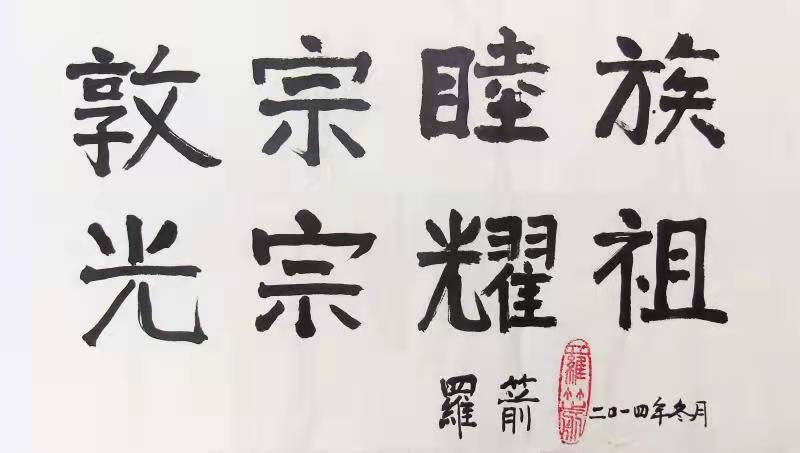 敦宗睦族
光宗耀祖
羅箭 羅箭 二〇一四年冬月